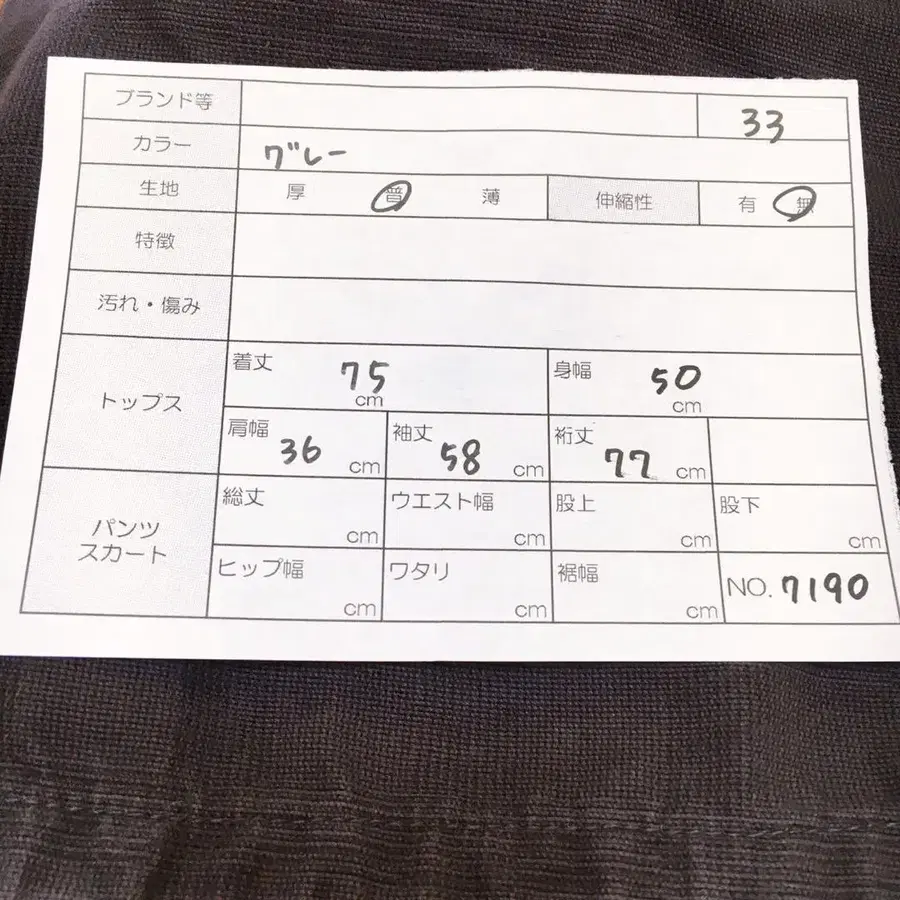 ブランド等 33
カラー グレー
生地 厚 普 薄 伸縮性 有 無
特徴
汚れ・傷み
トップス
着丈 75 cm 身幅 50 cm
肩幅 36 cm 袖丈 58 cm 裄丈 77 cm
パンツ
スカート
総丈 cm ウエスト幅 cm 股上 cm 股下 cm
ヒップ幅 cm ワタリ cm 裾幅 cm NO. 7190